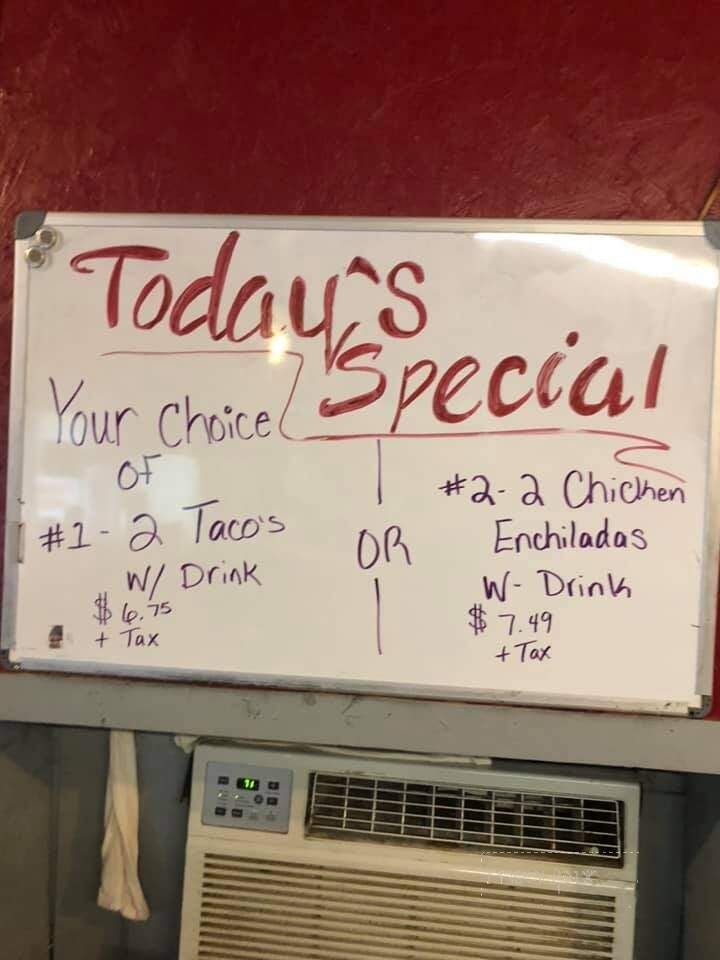 Today's
Special
Your Choice
OF
#1 - 2 Taco's
W/ Drink
$ 6.75
+ Tax
OR
#2 - 2 Chicken
Enchiladas
W - Drink
$ 7.49
+ Tax